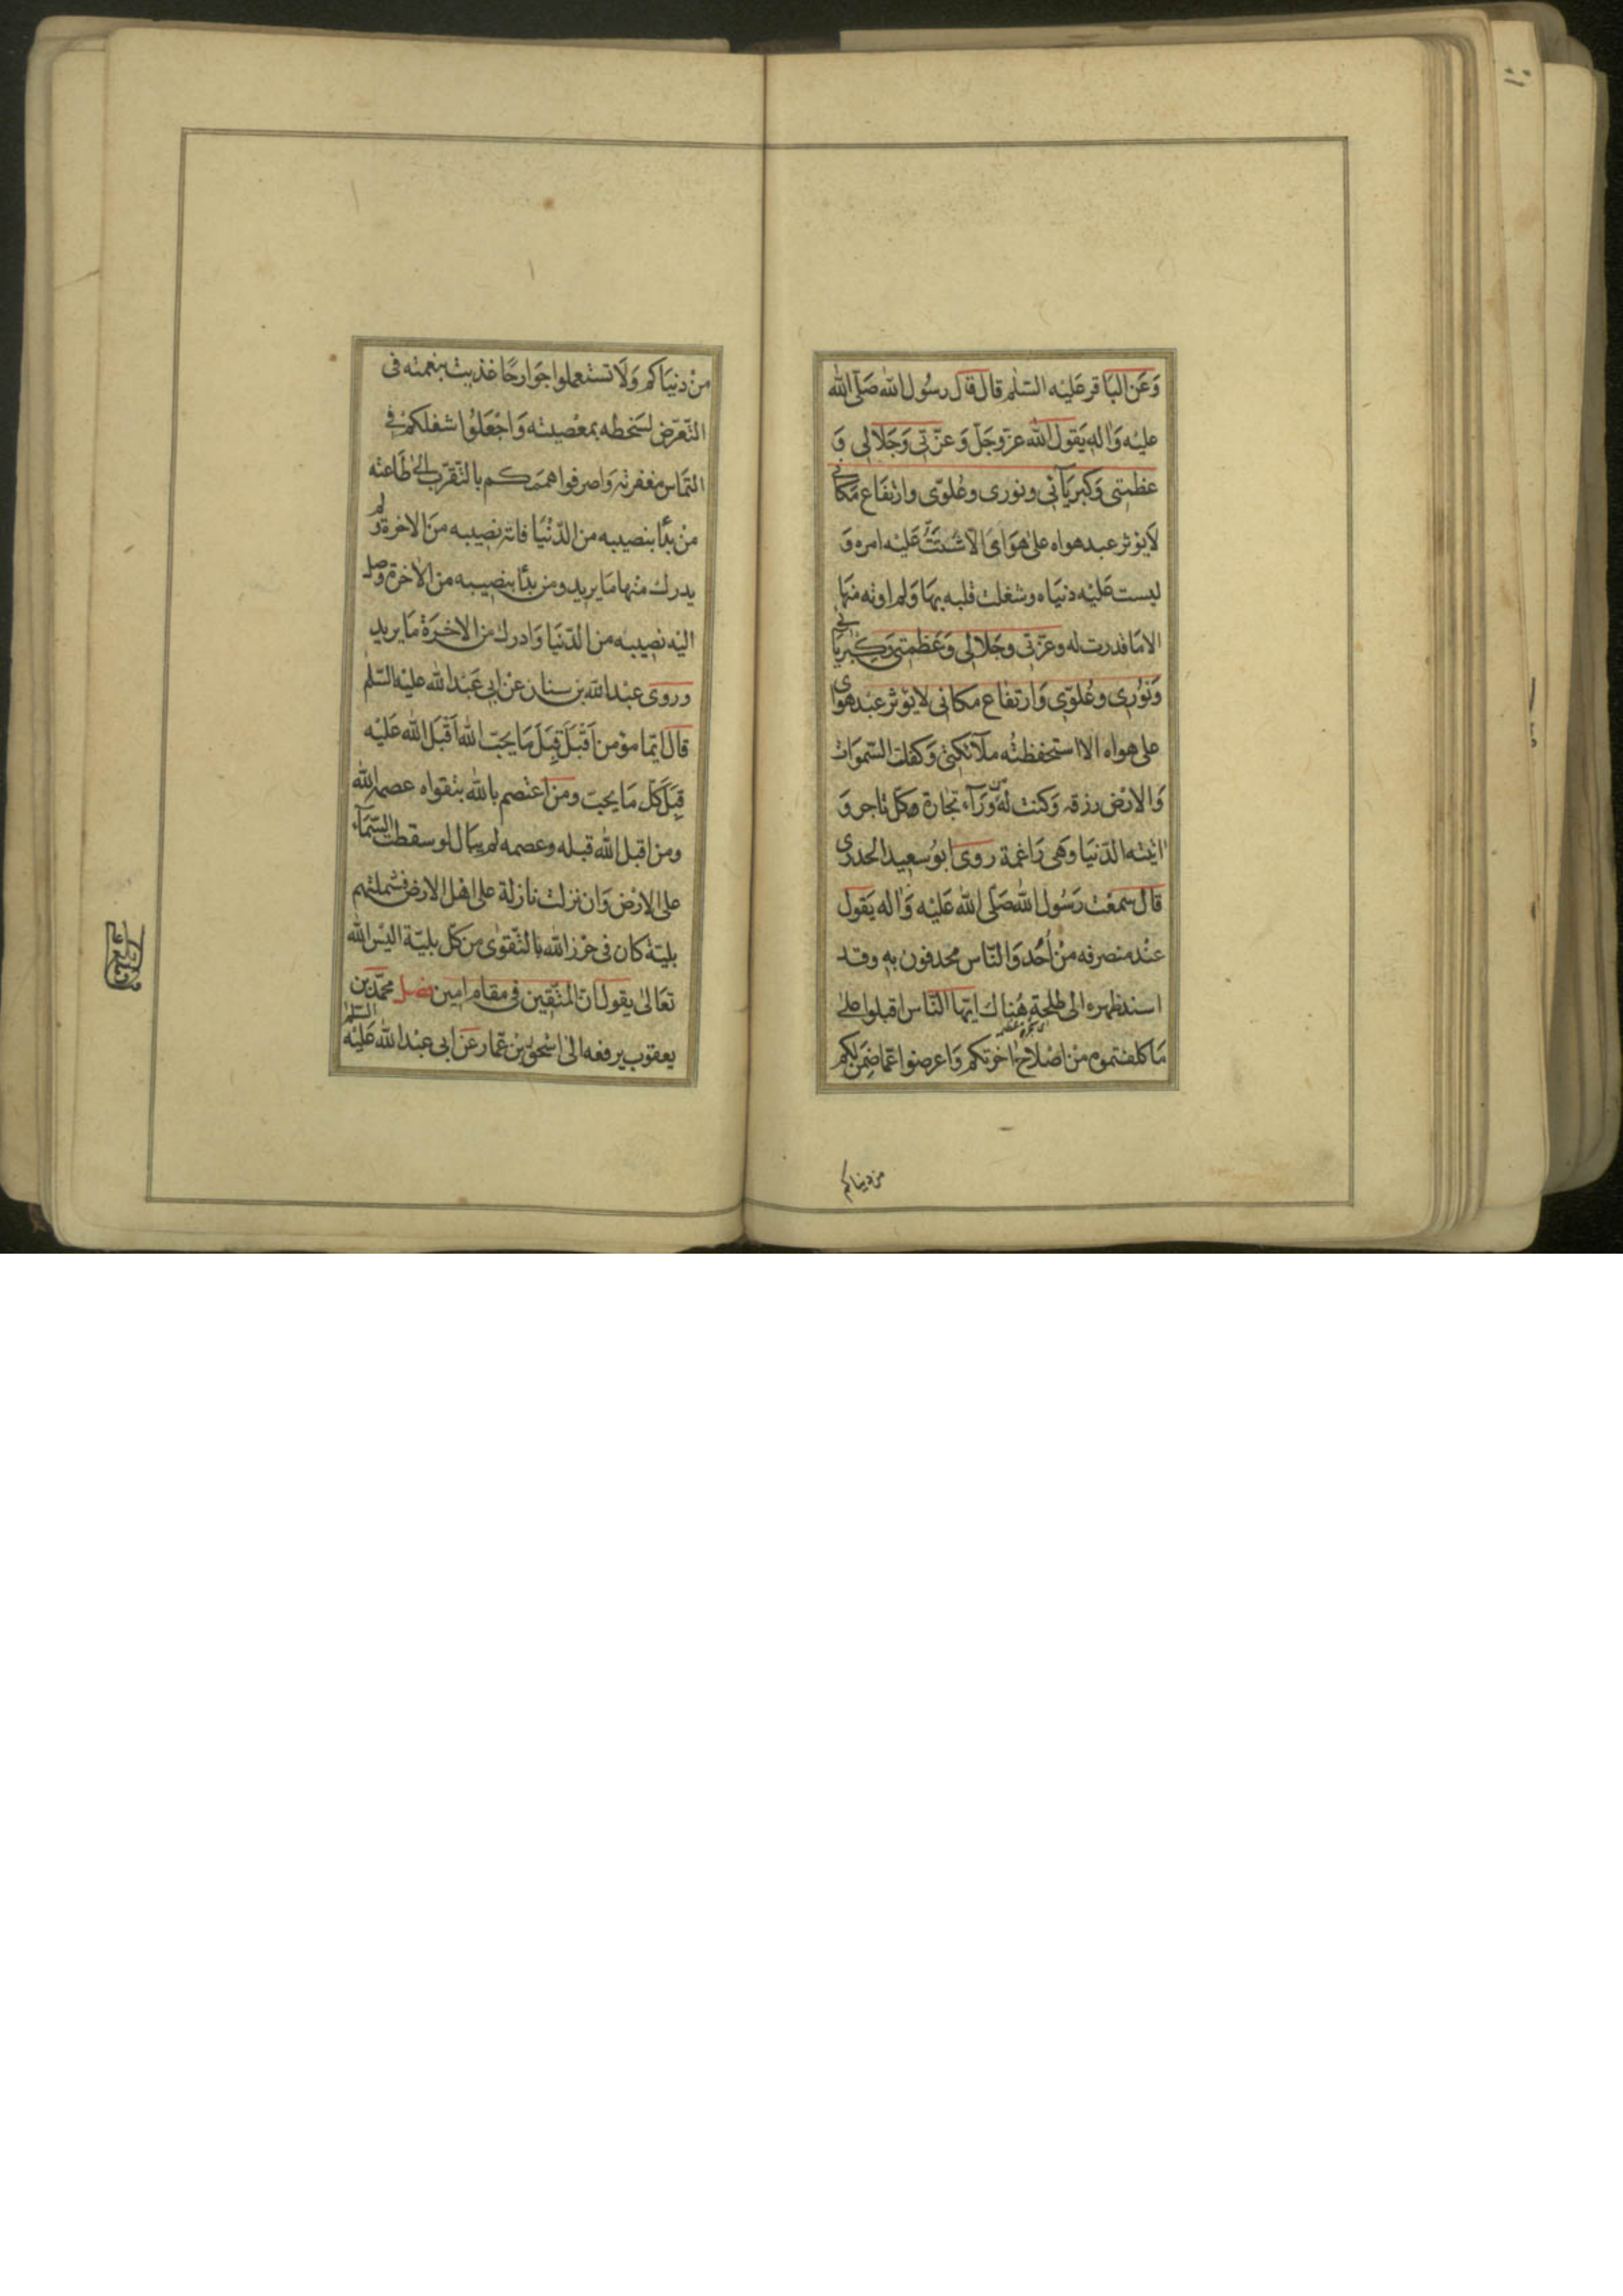 وَعَن البَاقر عَليْه السّلٰم قال قال رسُول الله صَلّى الله
عليْه وَاله يَقول الله عزّ وجَلّ وَعزّتى وَجَلالى وَ
عظمتى وَكبريَآئى ونورى وعُلوّى وارتفَاع مَكانى
لَا يؤثر عبد هواه علىٰ هَوَاىَ الّا شتّتُّ عَليْه امره وَ
لبست عَليْه دنيَاه وشغلت قلبه بهَا وَلم اوته منهَا
الا مَا قدرت له وعزّتى وجَلالى وَعَظمتى وَكِبْريَائى
وَنوُرى وعُلوّى وَارتفَاع مكانى لا يؤثر عبْد هواى
على هواه الا استحفظتُه ملآئكتى وَكفلت السّموَات
وَالارْض رزقه وَكنت لهُ من وَرَآء تجَارة كل تاجر وَ
اتته الدّنيَا وهى رَاغمة روى ابوُ سعيد الخدرى
قال سمعْت رَسُول الله صَلّى الله عَليْه وَاله يَقول
عنْد منصرفه منْ اُحُد وَالنّاس محدقون به وقد
اسند ظهره الى طلحةٍ هُنَاك ايّها النّاس اقبلوا علىٰ
مَا كلفتموه منْ اصْلاح اٰخرتكم وَاعرضوا عمّا ضمن لكم
من دنياكم
منْ دنيَاكم وَلَا تستعملوا جوَارحًا غذيت بنعمته فى
التّعرّض لسَخطه بمعْصيته وَاجْعَلوُا شغلكمْ فى
التماس مغفرته وَاصرفوا همّتكم بالتّقرّب الىٰ طَاعته
منْ بدَأ بنصيبه من الدّنْيَا فاته نصيبه منَ الاخرة ولم
يدرك منْها مَا يريد ومن بدَأ بنصيبه من الاخرة وصل
اليْه نصيبه من الدّنيَا وَادرك من الاخرَة مَا يريد
وروى عبْد الله بن سنان عنْ ابى عَبْد الله عليْه السّلم
قال ايّما مؤمن اَقْبَلَ قِبَلَ مَا يحبّ الله اَقْبَل الله عَليْه
قِبَلَ كلّ مَا يحبّ ومن اعْتصم بالله بتقواه عصمه الله
ومن اقبل الله قبله وعصمه لم يبَال لو سقطت السّمَآء
على الارْض وَان نزلت نازلة على اهْل الارض فشملتهم
بليّة كان فى حْرز الله بالتّقوٰى من كلّ بليّة اليْس الله
تعَالىٰ يقول انّ المتّقين فى مقام امين فصل محمّد بن
يعقوب يرفعه الىٰ اسْحٰق بْن عمّار عَن ابى عبْد الله عَليْه السّلم